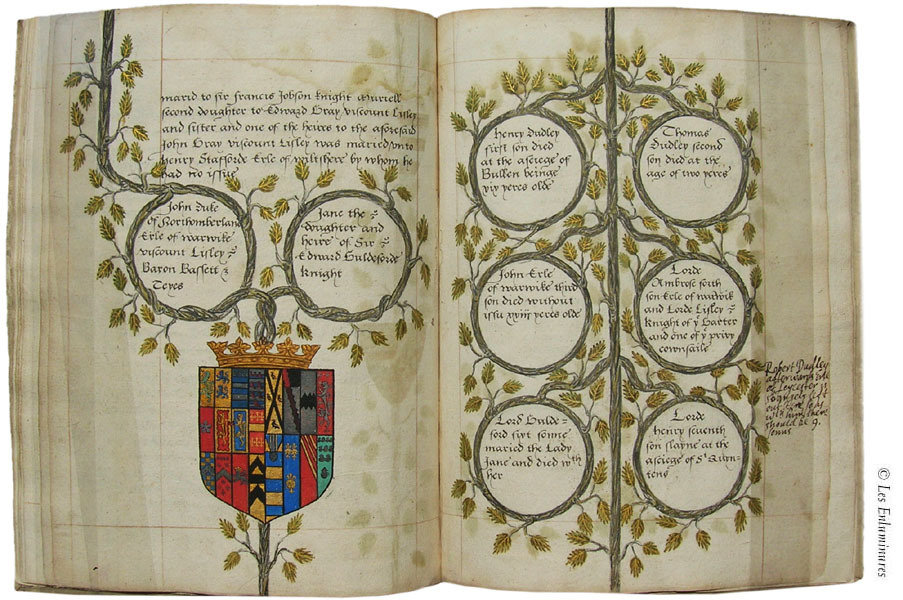 marid to sir francis Jobson knight Murrell
second doughter to Edward Gray viscount Lisley
and sister and one of the heires to the aforesaid
John Gray viscount Lisley was maried unto
Henry Stafforde Erle of wiltshere by whom he
had no issue
John Duke
of Northomberlan
Erle of warwike
viscount Lisley
Baron Bassett &
Teyes
Jane the
doughter and
heire of Sir
Edward Guldeforde
knight
Henry Dudley
first son died
at the asciege of
Bullen beinge
xix yeres olde
Thomas
Dudley second
son died at the
age of two yeres
John Erle
of warwike third
son died without
issu xxiii yeres olde
Lorde
Ambrose forth
son Erle of warwik
and Lorde Lisley
knight of ye Garter
and one of ye privy
cownsaile
Lord Gulde=
ford sixt sonne
maried the Lady
Jane and died wth
her
Lorde
henry seventh
son slayne at the
asciege of St Quyn=
tens
Robert Dudley
afterwards Erl
of Leycester is
out
should be 9.
sonns.
© Les Enluminures